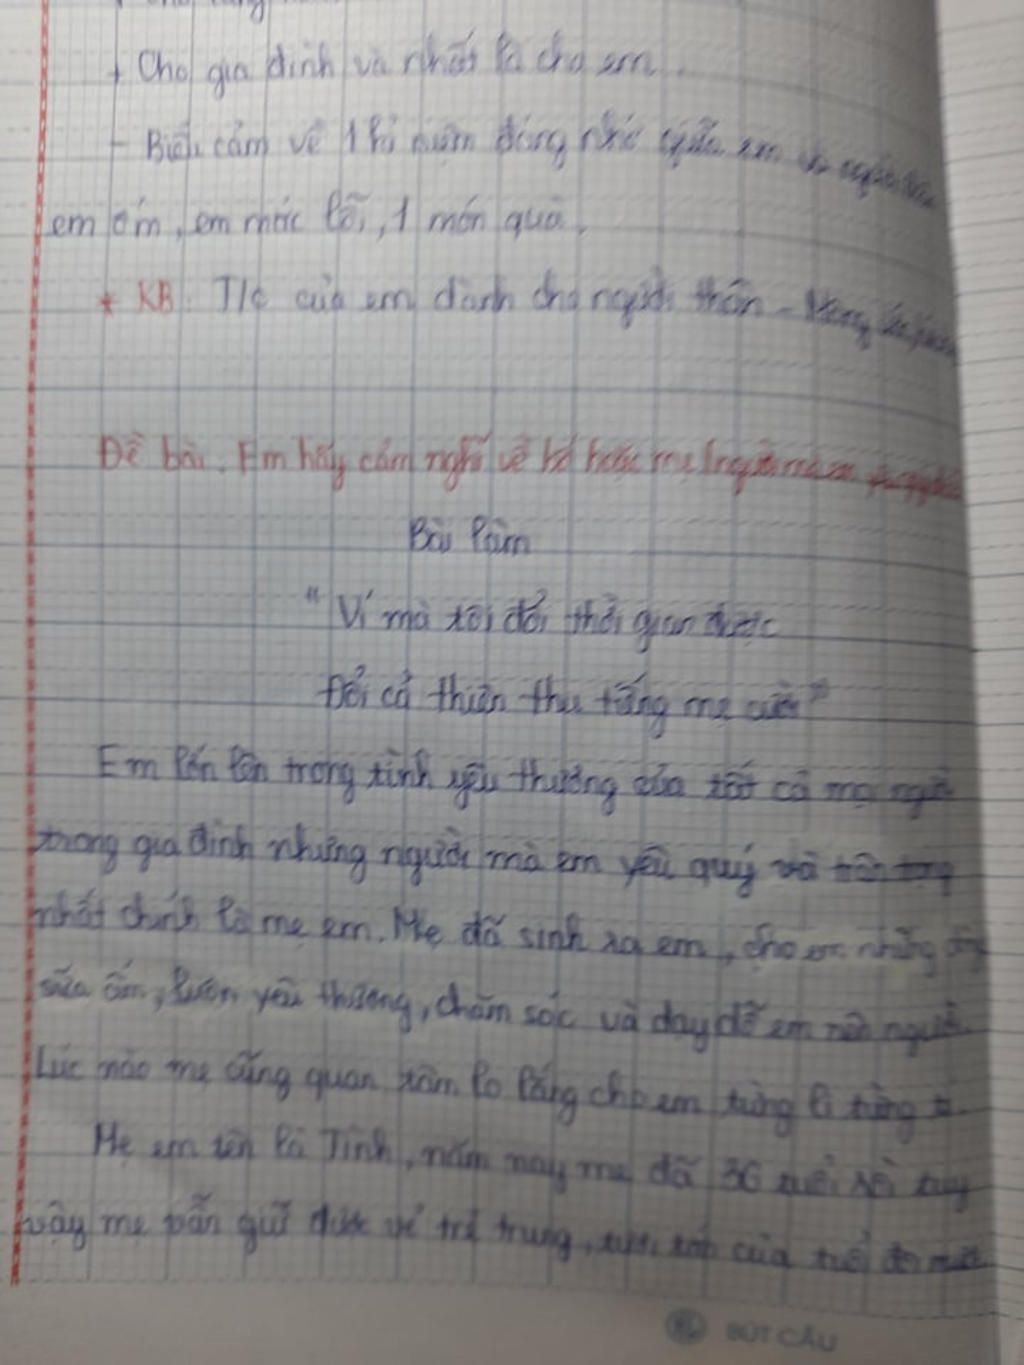 + Cho gia đình và nhất là cho em.
- Biểu cảm về 1 kỉ niệm đáng nhớ giữa em và người thân
em ốm, em mắc lỗi, 1 món quà.
* KB: T/c của em dành cho người thân - Mong
Đề bài. Em hãy cảm nghĩ về bố hoặc mẹ
Bài làm
" Ví mà tôi đổi thời gian được
Đổi cả thiên thu tiếng mẹ cười "
Em lớn lên trong tình yêu thương của tất cả mọi người
trong gia đình nhưng người mà em yêu quý và trân trọng
nhất chính là mẹ em. Mẹ đã sinh ra em, cho em những dòng
sữa ấm, luôn yêu thương, chăm sóc và dạy dỗ em nên người.
Lúc nào mẹ cũng quan tâm lo lắng cho em từng li từng tí.
Mẹ em tên là Tình, năm nay mẹ đã 36 tuổi rồi tuy
vậy mẹ vẫn giữ được vẻ trẻ trung, tươi tắn của tuổi đôi mươi
BÚT CÂU